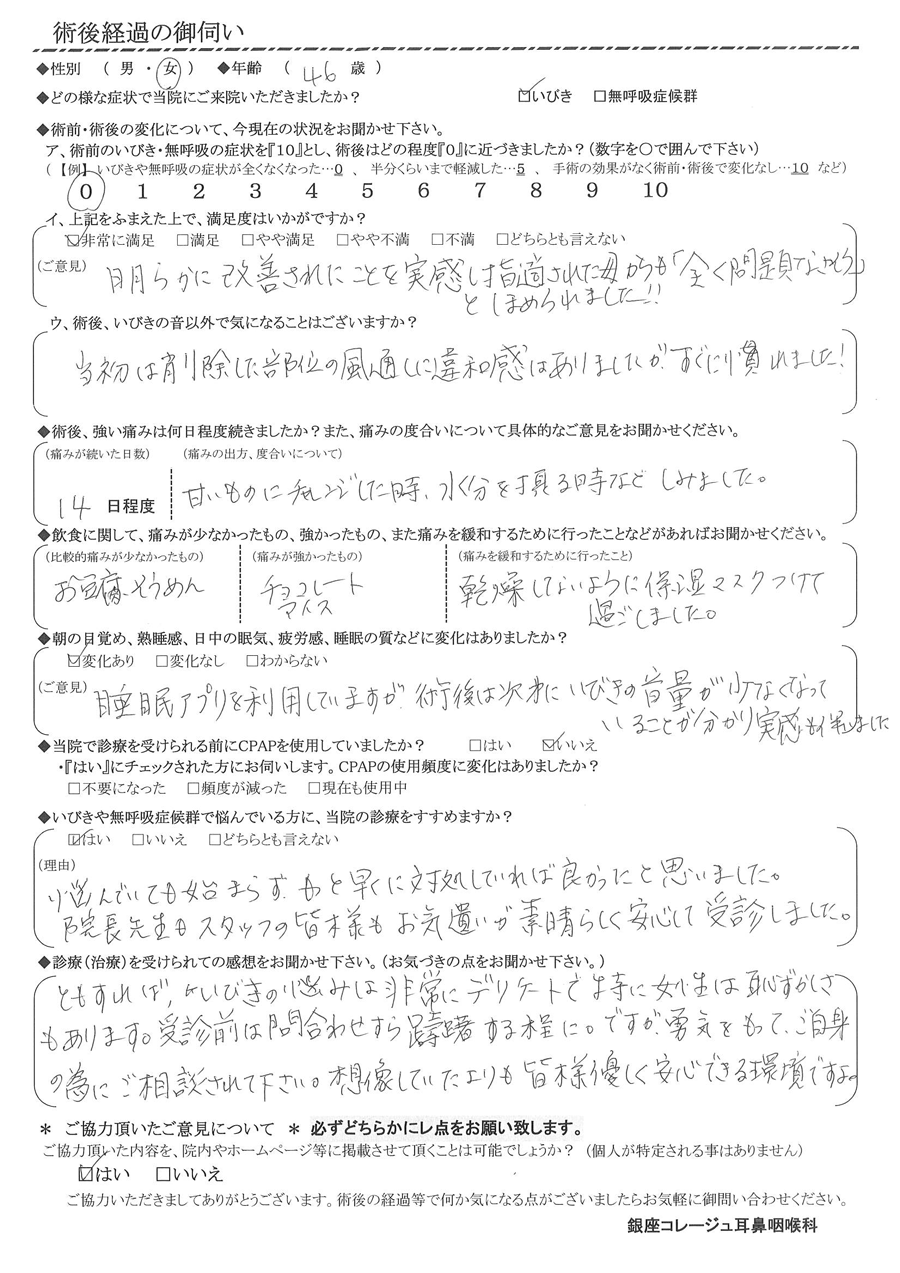 術後経過の御伺い
◆性別 ( 男 ・ 女 ) ◆年齢 ( 46 歳 )
◆どの様な症状で当院にご来院いただきましたか? ☑いびき □無呼吸症候群
◆術前・術後の変化について、今現在の状況をお聞かせ下さい。
ア、術前のいびき・無呼吸の症状を『10』とし、術後はどの程度『0』に近づきましたか?(数字を○で囲んで下さい)
(【例】 いびきや無呼吸の症状が全くなくなった…0 、 半分くらいまで軽減した…5 、 手術の効果がなく術前・術後で変化なし…10 など)
0 1 2 3 4 5 6 7 8 9 10
イ、上記をふまえた上で、満足度はいかがですか?
☑非常に満足 □満足 □やや満足 □やや不満 □不満 □どちらとも言えない
(ご意見) 明らかに改善されたことを実感し指摘された母からも「全く問題なかろう」
とほめられました!!
ウ、術後、いびきの音以外で気になることはございますか?
当初は削除した部位の風通しに違和感はありましたが、すぐに慣れました!
◆術後、強い痛みは何日程度続きましたか?また、痛みの度合いについて具体的なご意見をお聞かせください。
(痛みが続いた日数) (痛みの出方、度合いについて)
14 日程度 甘いものにチャレンジした時、水分を頂る時などしみました。
◆飲食に関して、痛みが少なかったもの、強かったもの、また痛みを緩和するために行ったことなどがあればお聞かせください。
(比較的痛みが少なかったもの) (痛みが強かったもの) (痛みを緩和するために行ったこと)
お豆腐、そうめん チョコレート 乾燥しないように保湿マスクつけて
アイス 過ごしました。
◆朝の目覚め、熟睡感、日中の眠気、疲労感、睡眠の質などに変化はありましたか?
☑変化あり □変化なし □わからない
(ご意見) 睡眠アプリを利用していますが、術後は次第にいびきの音量が少なくなって
いることが分かり実感も伴ました
◆当院で診療を受けられる前にCPAPを使用していましたか? □はい ☑いいえ
・『はい』にチェックされた方にお伺いします。CPAPの使用頻度に変化はありましたか?
□不要になった □頻度が減った □現在も使用中
◆いびきや無呼吸症候群で悩んでいる方に、当院の診療をすすめますか?
☑はい □いいえ □どちらとも言えない
(理由)
悩んでいても始まらず、もっと早くに対処していれば良かったと思いました。
院長先生もスタッフの皆様もお気遣いが素晴らしく安心して受診しました。
◆診療(治療)を受けられての感想をお聞かせ下さい。(お気づきの点をお聞かせ下さい。)
ともすれば、いびきの悩みは非常にデリケートで特に女性は恥ずかしさ
もあります。受診前は問合わせすら躊躇する程に。ですが、勇気をもって、ご自身
の為にご相談されて下さい。想像していたよりも皆様優しく安心できる環境ですよ。
* ご協力頂いたご意見について * 必ずどちらかにレ点をお願い致します。
ご協力頂いた内容を、院内やホームページ等に掲載させて頂くことは可能でしょうか? (個人が特定される事はありません)
☑はい □いいえ
ご協力いただきましてありがとうございます。術後の経過等で何か気になる点がございましたらお気軽に御問い合わせください。
銀座コレージュ耳鼻咽喉科